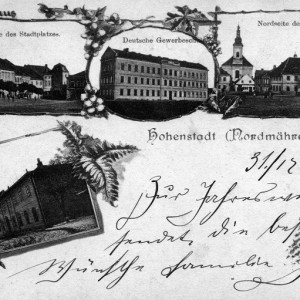 des Stadtplatzes.
Deutsche Gewerbesch
Nordseite de
Hohenstadt (Nordmähre
31/12
Zur Jahreswe
sendet die be
Wünsche Familie